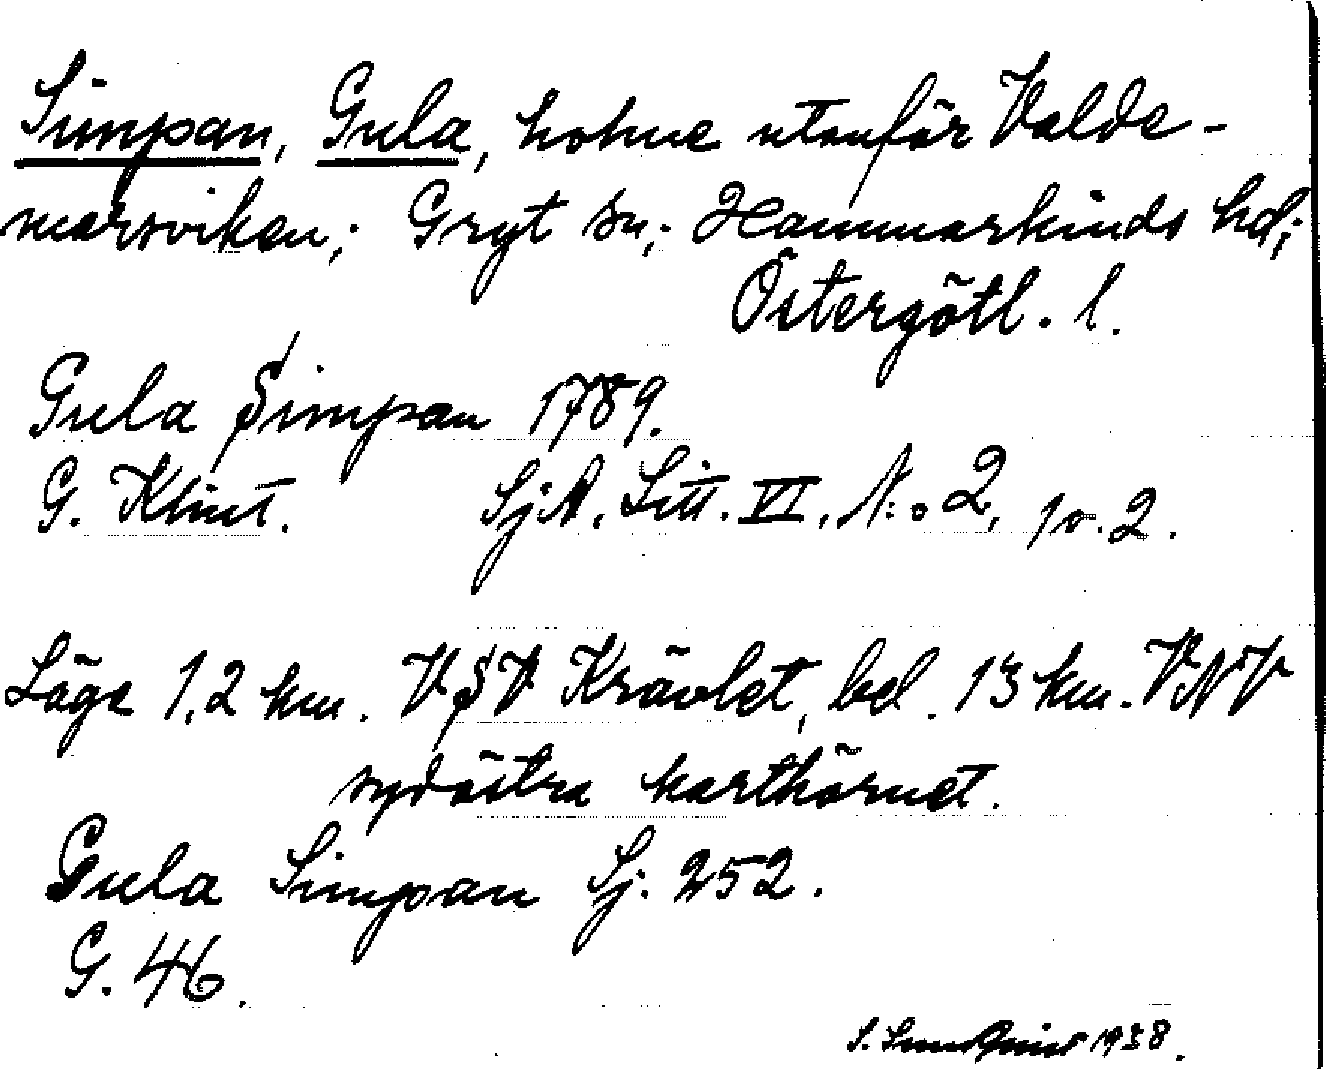 Simpan, Gula, holme utanför Valde-
marsviken; Gryt sn; Hammarkinds hd;
Östergötl. l.
Gula Simpan 1789.
G. Klint. SjA. Litt. VI, N:o 2,
Läge 1,2 km. VSV Krävlet, bel. 13 km. VNV
sydöstra karthörnet.
Gula Simpan Sj. 252.
G. 46.
1938.